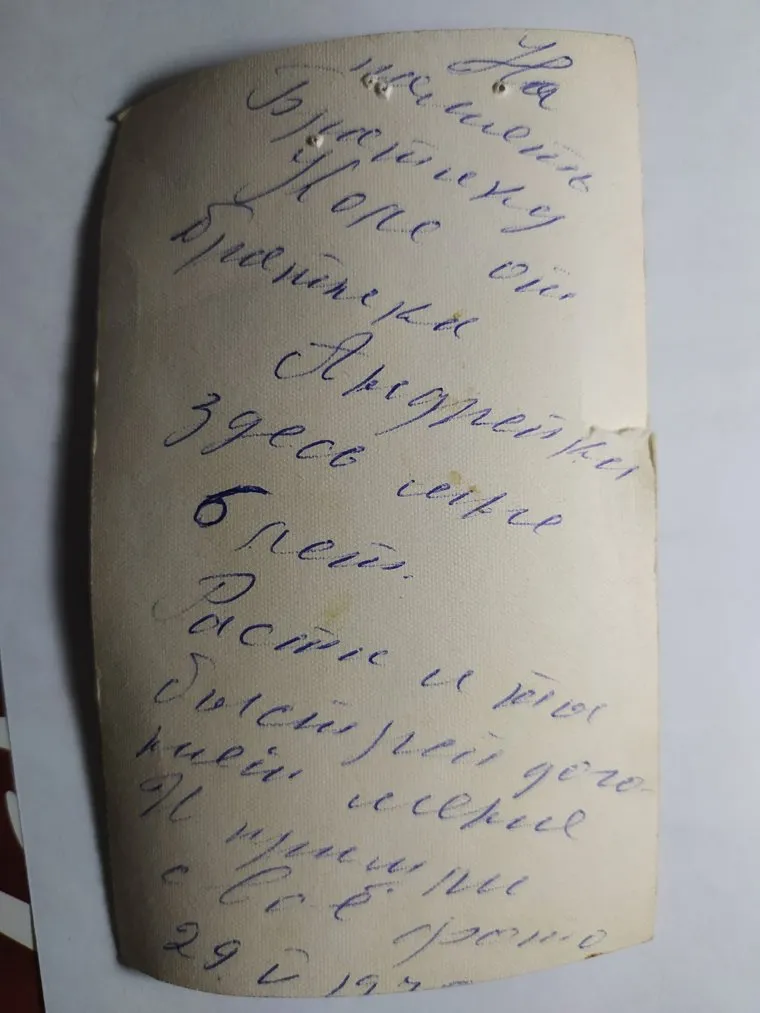 На
память
Братику
Юре от
братика
Андрейки
Здесь мне
6 лет.
Расти и ты
быстрей дого-
няй меня
И пришли
своё фото
29